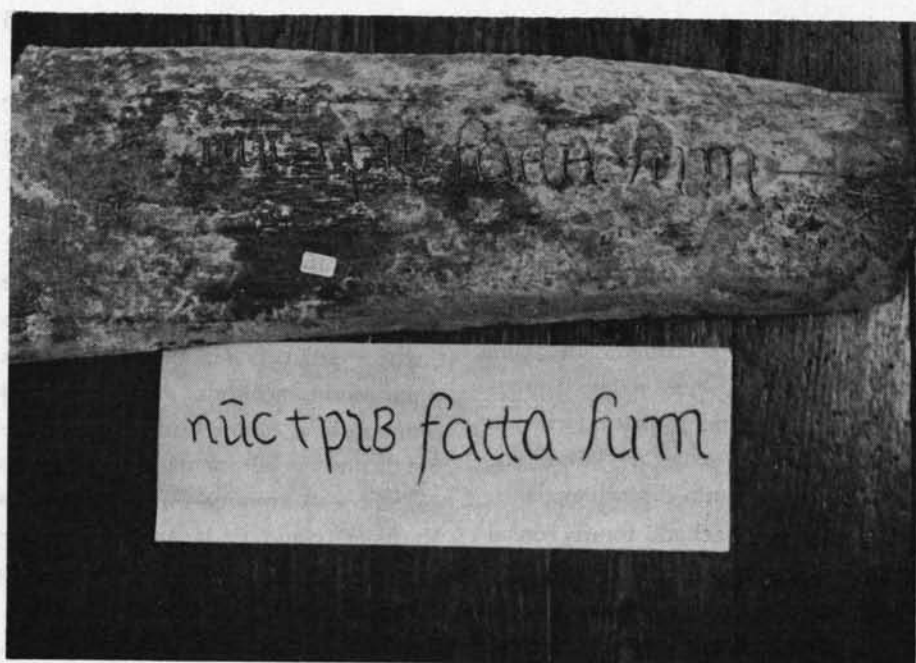 nūc tpıb facta ſum
nūc tpıB facta ſum